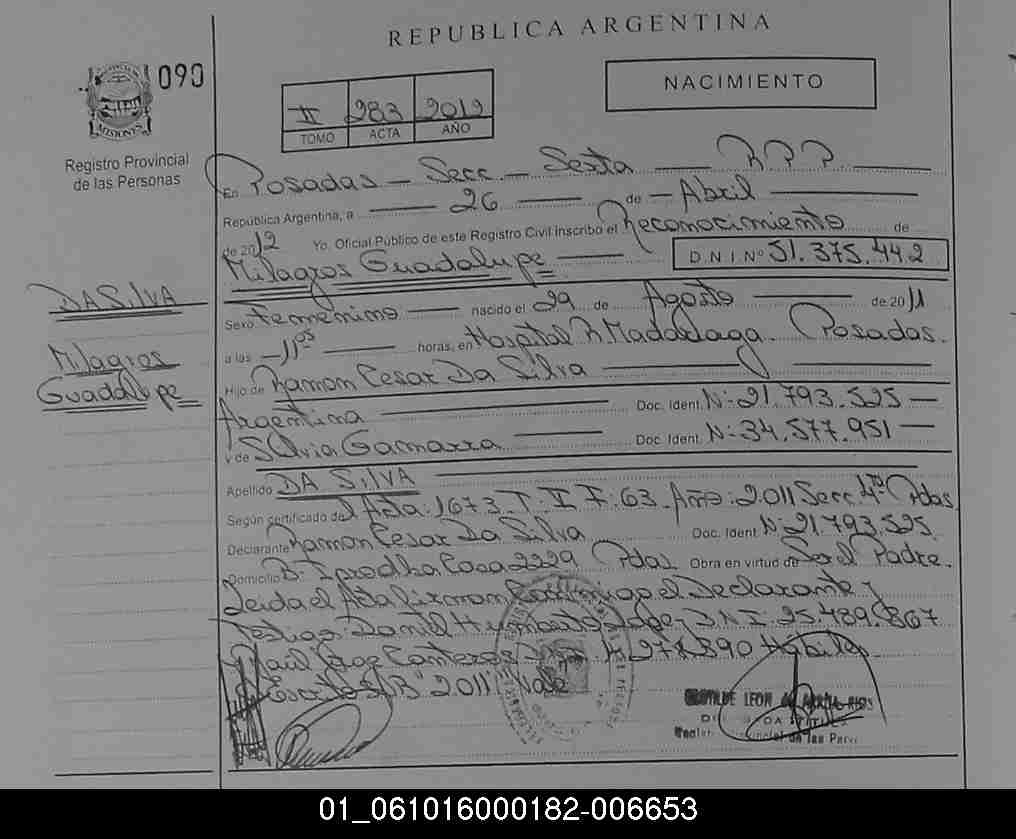 REPUBLICA ARGENTINA
090
NACIMIENTO
II 283 2012
TOMO ACTA AÑO
MISIONES
Registro Provincial
de las Personas
En Posadas - Secc. - Sexta R.P.P.
República Argentina, a 26 de Abril
de 2012 Yo, Oficial Público de este Registro Civil inscribo el Reconocimiento de
Milagros Guadalupe D N I Nº 51.375.442
DA SILVA
Milagros
Guadalupe
Sexo Femenino nacido el 29 de Agosto de 2011
a las 11 05 horas, en Hospital R. Madariaga. Posadas.
Hijo de Ramon Cesar Da Silva
Argentina Doc. Ident. N: 21.793.525
y de Silvia Gamarra Doc. Ident. N: 34.577.951
Apellido DA SILVA
Según certificado de Acta: 1673. T. V F: 63. Año: 2011 Secc. 4ta Pdas.
Declarante Ramon Cesar Da Silva Doc. Ident. N: 21.793.525
Domicilio B: Iprodha Casa 2229 Pdas. Obra en virtud de Ser el Padre.
Leida el Acta firman conmigo el Declarante y
Testigo: Daniel Humberto D.N.I: 25.489.867
Escrito S/B "2011" Vale
01_061016000182-006653